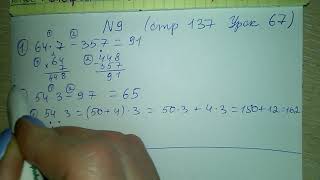 N9 (стр 137 Урок 67)
① 64·7 - 357 = 91
① 64 ② 448
7 357
448 91
54·3 - 97 = 65
54·3 = (50+4)·3 = 50·3 + 4·3 = 150+12=162